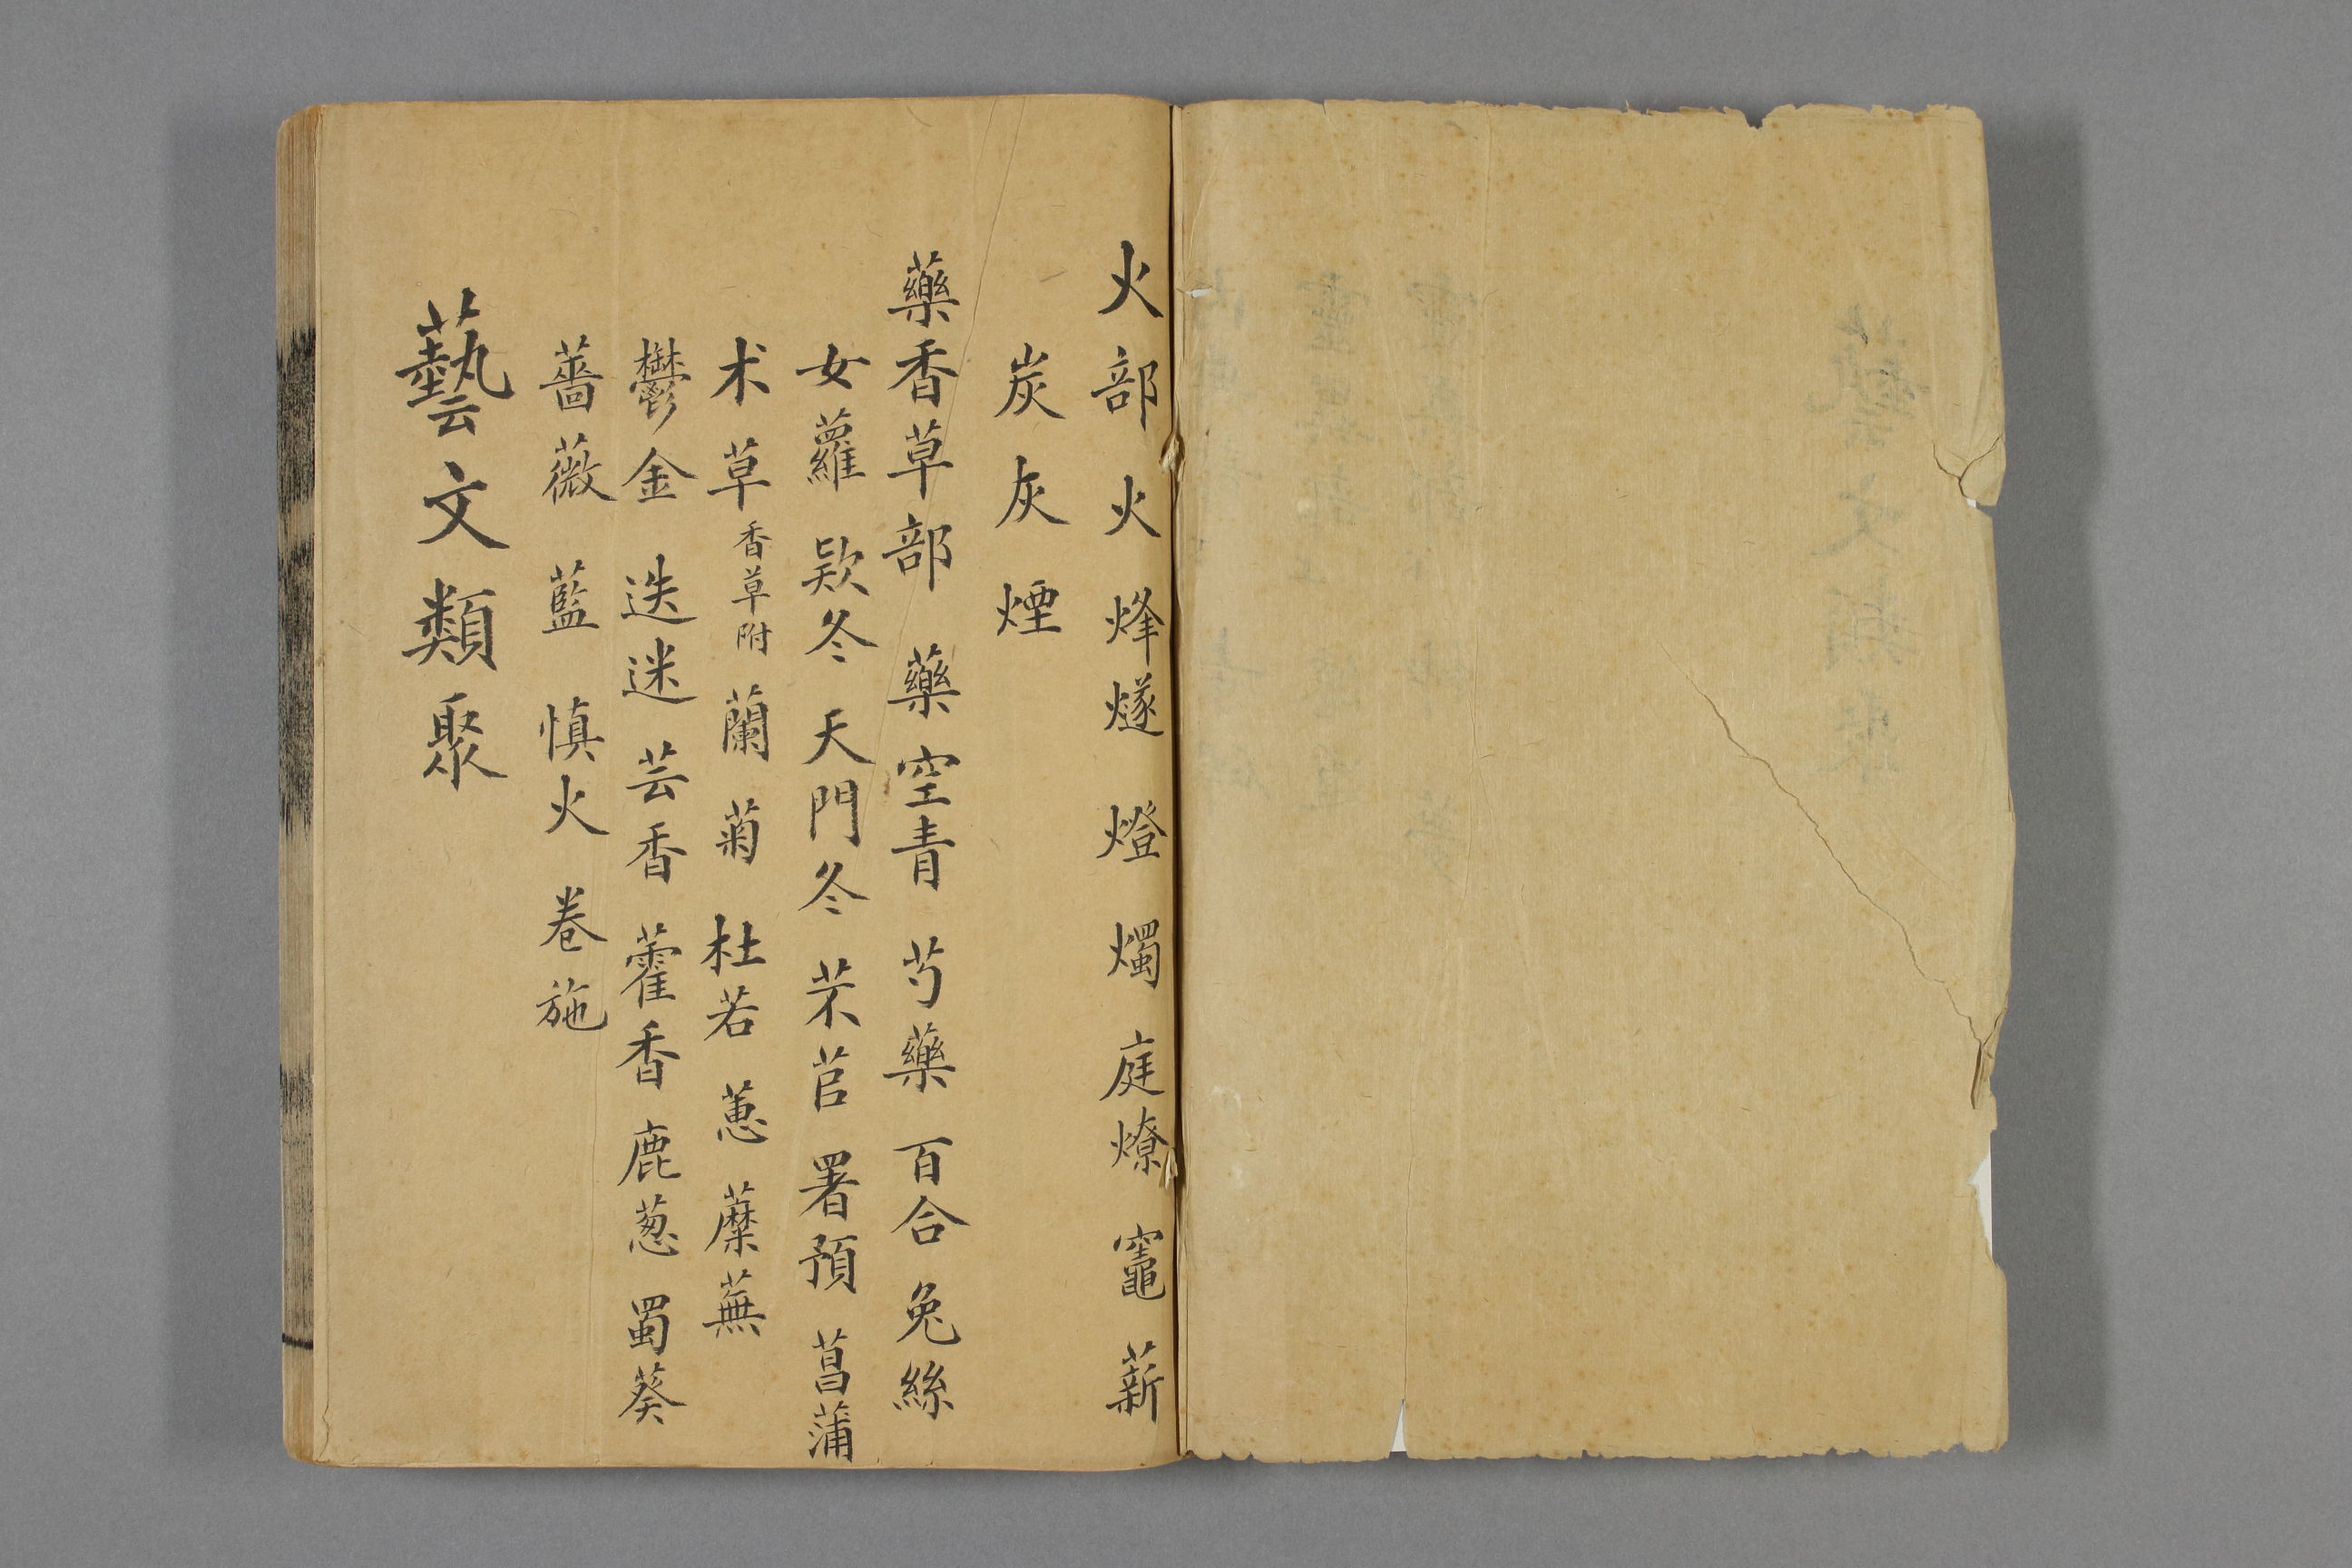 火部 火 烽燧 燈 燭 庭燎 竈 薪
炭 灰 煙
藥香草部 藥 空青 芍藥 百合 兔絲
女蘿 欵冬 天門冬 芣苢 署預 菖蒲
术 草香草附 蘭 菊 杜若 蕙 蘼蕪
鬱金 迭迷 芸香 藿香 鹿葱 蜀葵
薔薇 藍 慎火 卷施
藝文類聚